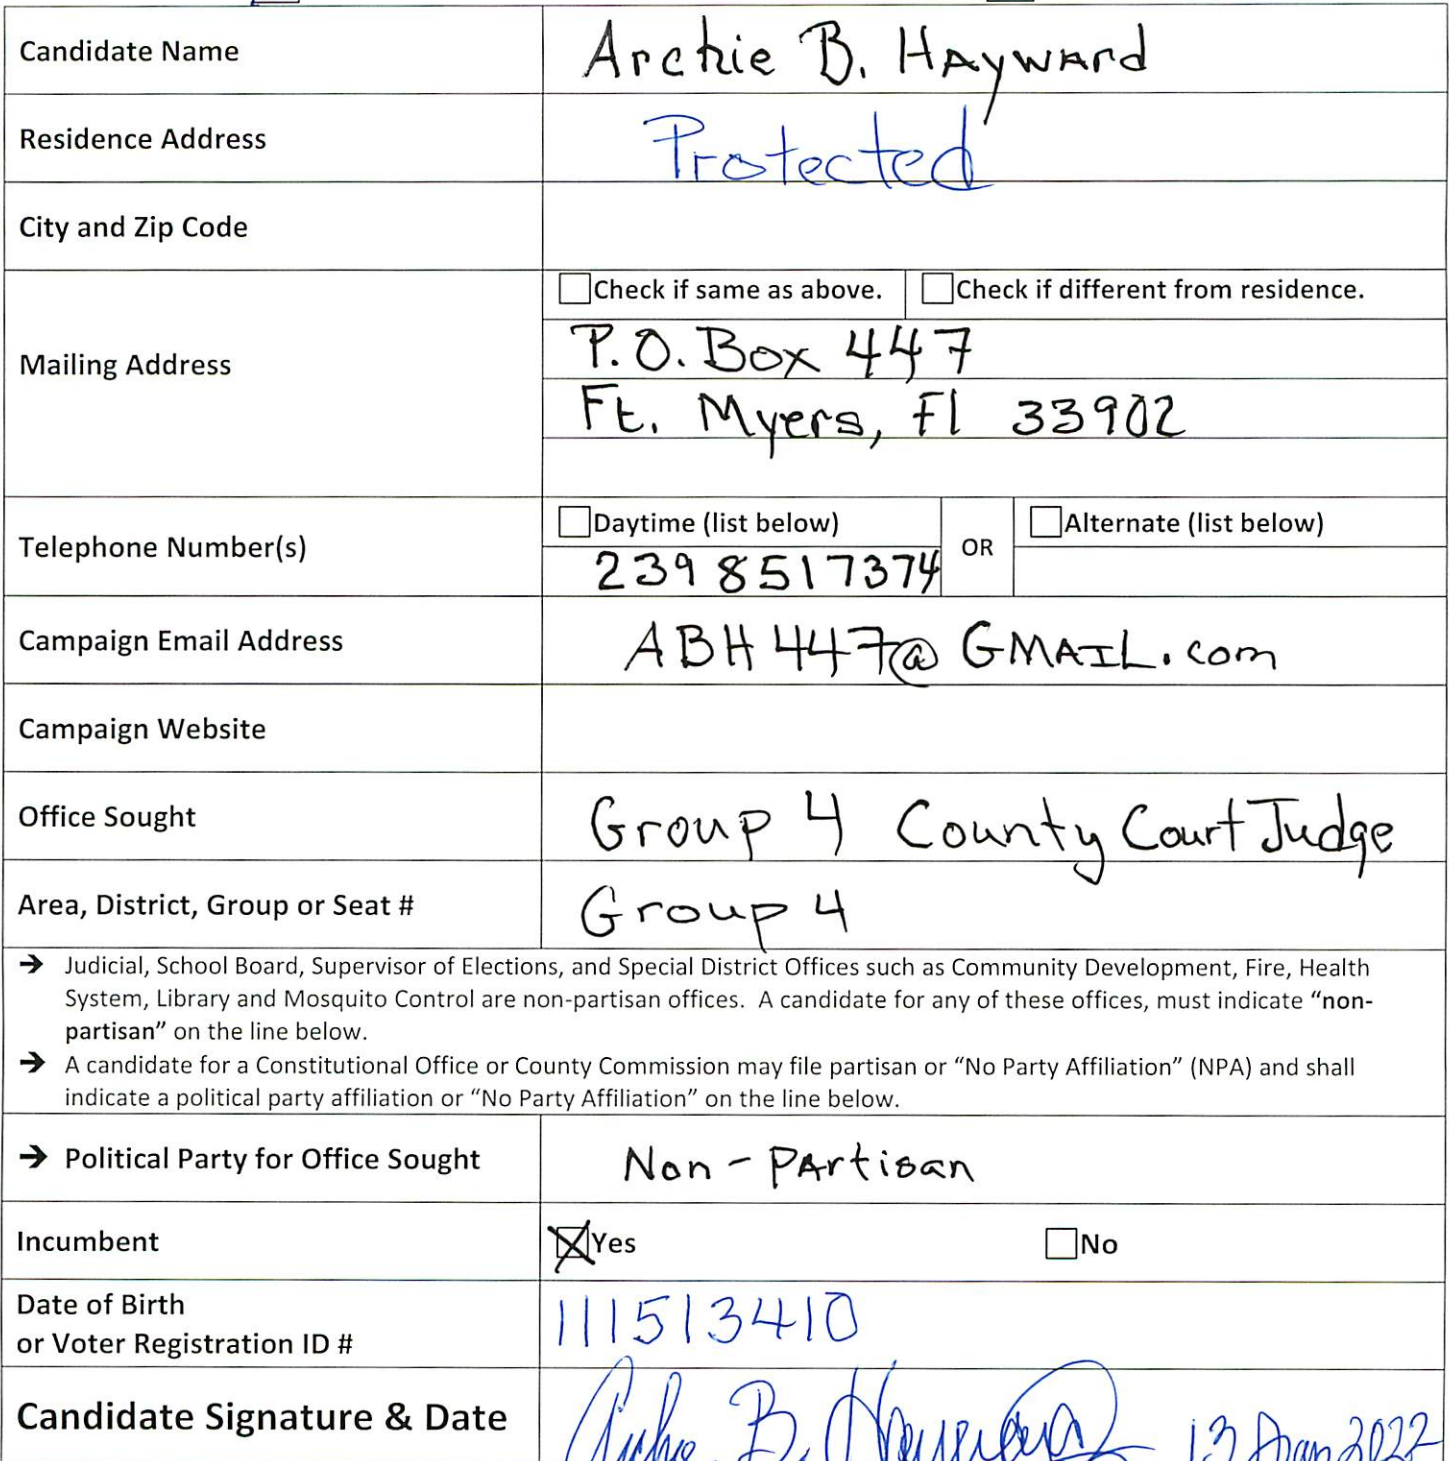 Candidate Name Archie B. Hayward
Residence Address Protected
City and Zip Code
Check if same as above. Check if different from residence.
Mailing Address
P.O. Box 447
Ft. Myers, Fl 33902
Telephone Number(s)
Daytime (list below) OR Alternate (list below)
239 8517374
Campaign Email Address ABH447@GMAIL.com
Campaign Website
Office Sought Group 4 County Court Judge
Area, District, Group or Seat # Group 4
→ Judicial, School Board, Supervisor of Elections, and Special District Offices such as Community Development, Fire, Health
System, Library and Mosquito Control are non-partisan offices. A candidate for any of these offices, must indicate “non-
partisan” on the line below.
→ A candidate for a Constitutional Office or County Commission may file partisan or “No Party Affiliation” (NPA) and shall
indicate a political party affiliation or “No Party Affiliation” on the line below.
→ Political Party for Office Sought Non-Partisan
Incumbent Yes No
Date of Birth
or Voter Registration ID # 111513410
Candidate Signature & Date Archie B. Hayward 13 Jan 2022